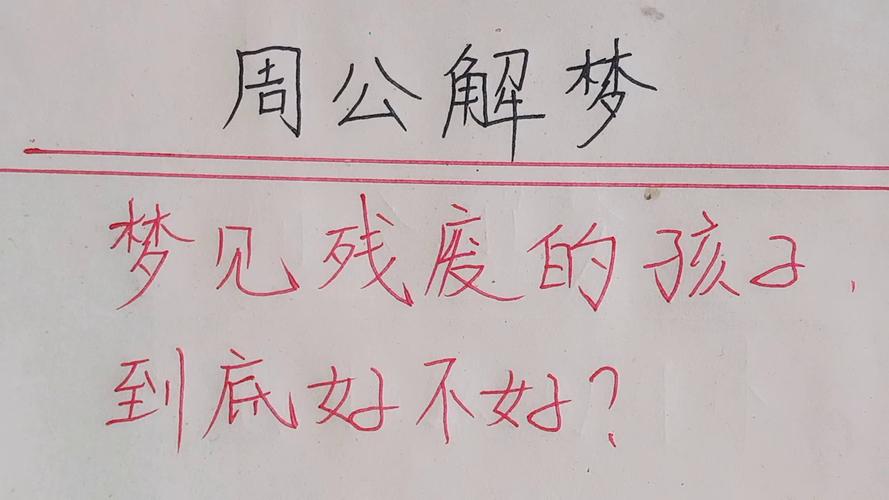 周公解梦
梦见残废的孩子,
到底好不好?